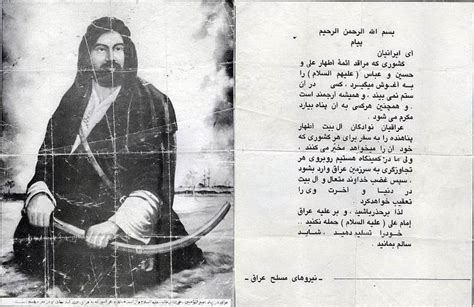 بسم الله الرحمن الرحیم
پیام
ای ایرانیان
کشوری که مراقد ائمهٔ اطهار علی و
حسین و عباس (علیهم السلام) را
به آغوش میگیرد، کسی در آن
ستم نمی بیند، و همیشه ارجمند است
و همچنین هرکسی به آن پناه ببارد
مکرم می شود.
عراقیان نوادگان آل بیت اطهار
پناهنده را به سفر برای هر کشوری که
خود آن را میخواهد مخیّر می کنند،
ولی ما در کمینگاه هستیم روبروی هر
تجاوزگری به سرزمین عراق وارد بشود
، سپس غضب خداوند متعال و آل بیت
در دنیا و آخرت وی را
تعقیب خواهدکرد.
لذا برحذرباشید، و بر علیه عراق
امام علی (علیه السلام) حمله نکنید..
خودرا تسلیم دهید، شاید
سالم بمانید.
ـ نیروهای مسلح عراق ـ